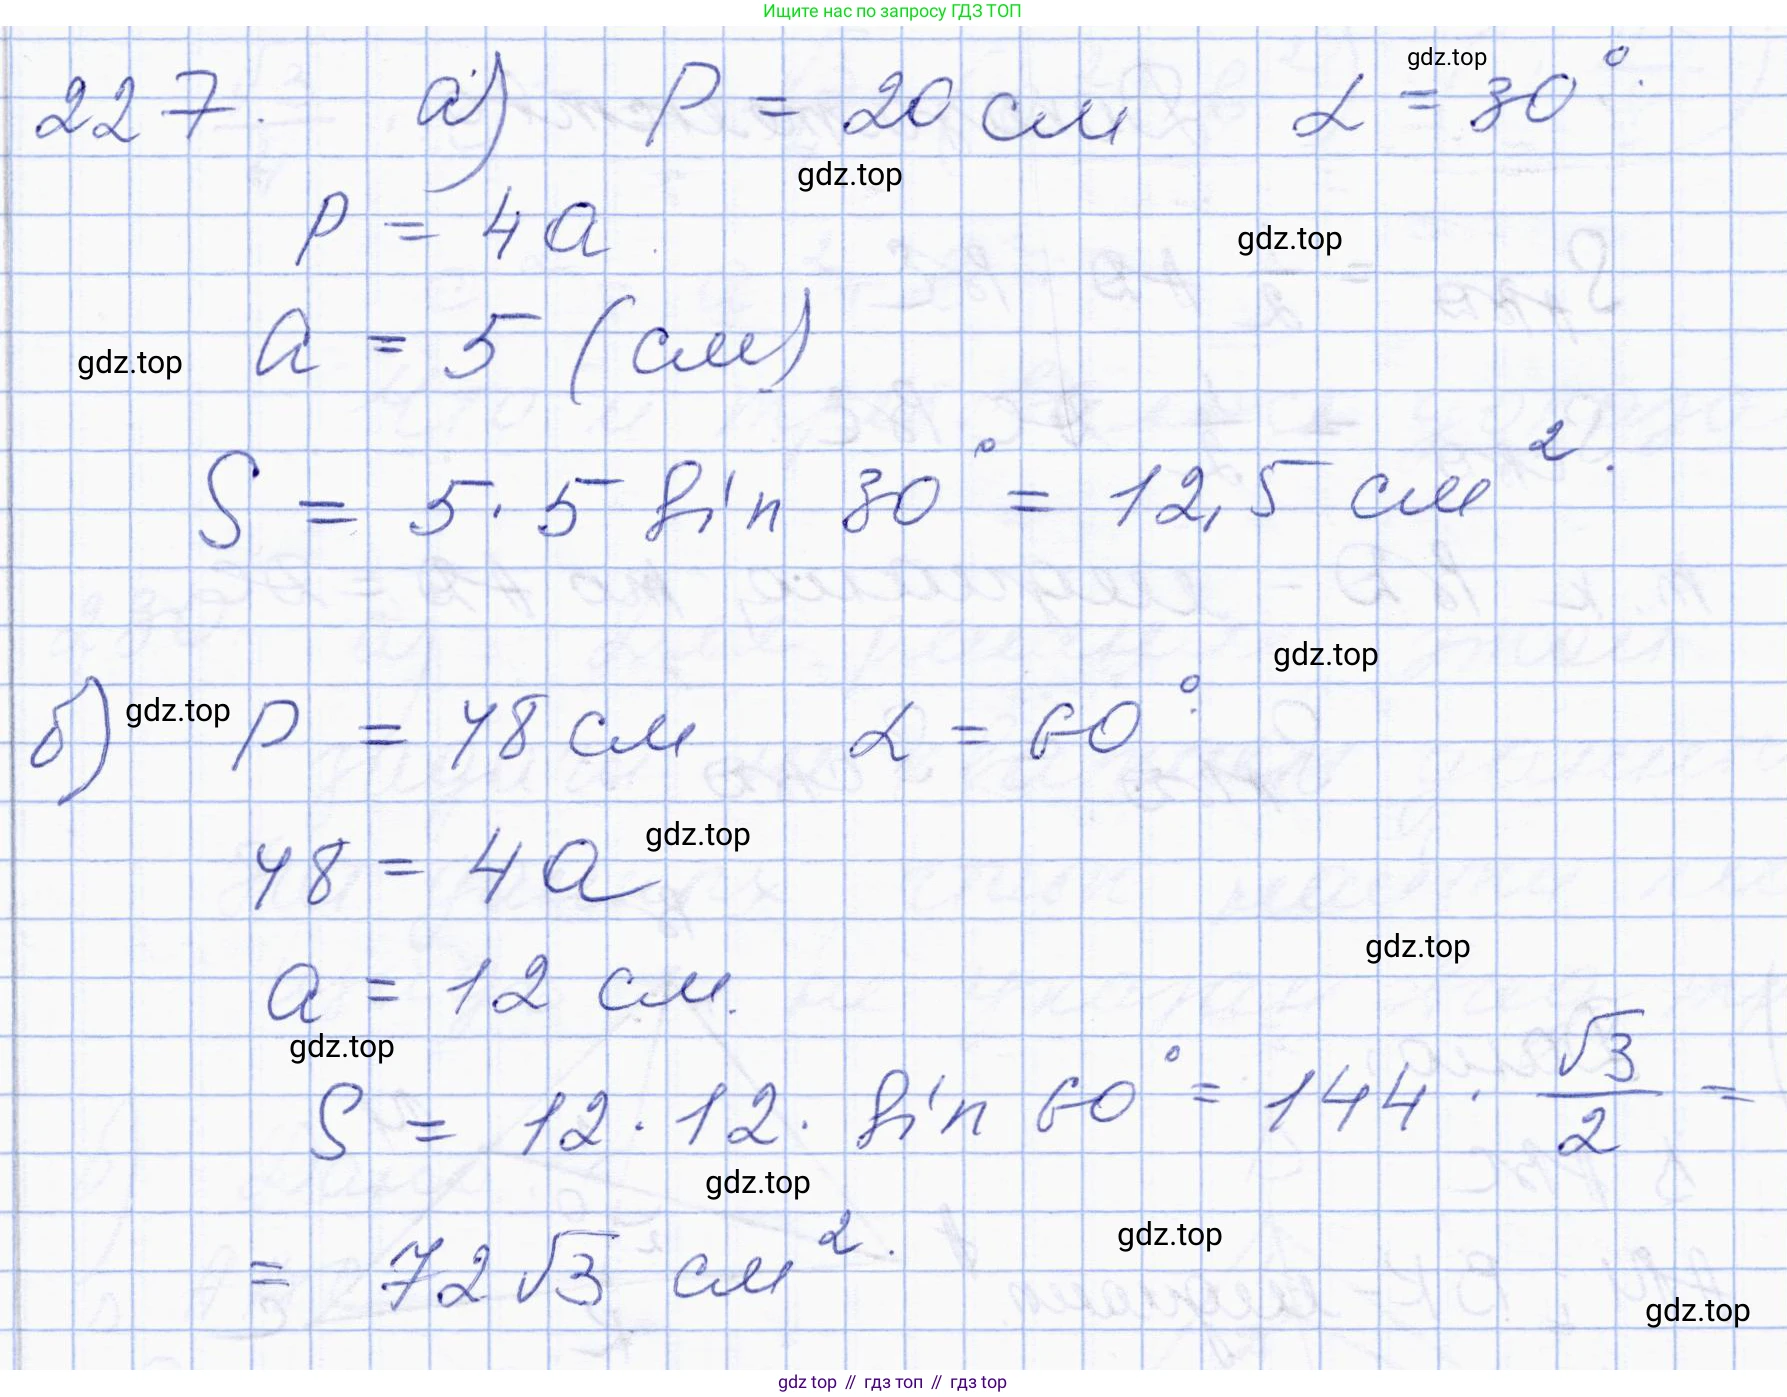 Ищите нас по запросу ГДЗ ТОП
gdz.top
227. а) P = 20 см α = 30°.
gdz.top
P = 4a
gdz.top
a = 5 (см)
gdz.top
S = 5 · 5 sin 30° = 12,5 см².
gdz.top
б) P = 48 см α = 60°.
gdz.top
48 = 4a
gdz.top
gdz.top
a = 12 см.
gdz.top
S = 12 · 12 · sin 60° = 144 · √3/2 =
gdz.top
gdz.top
= 72√3 см².
gdz.top
gdz top // гдз топ // гдз top